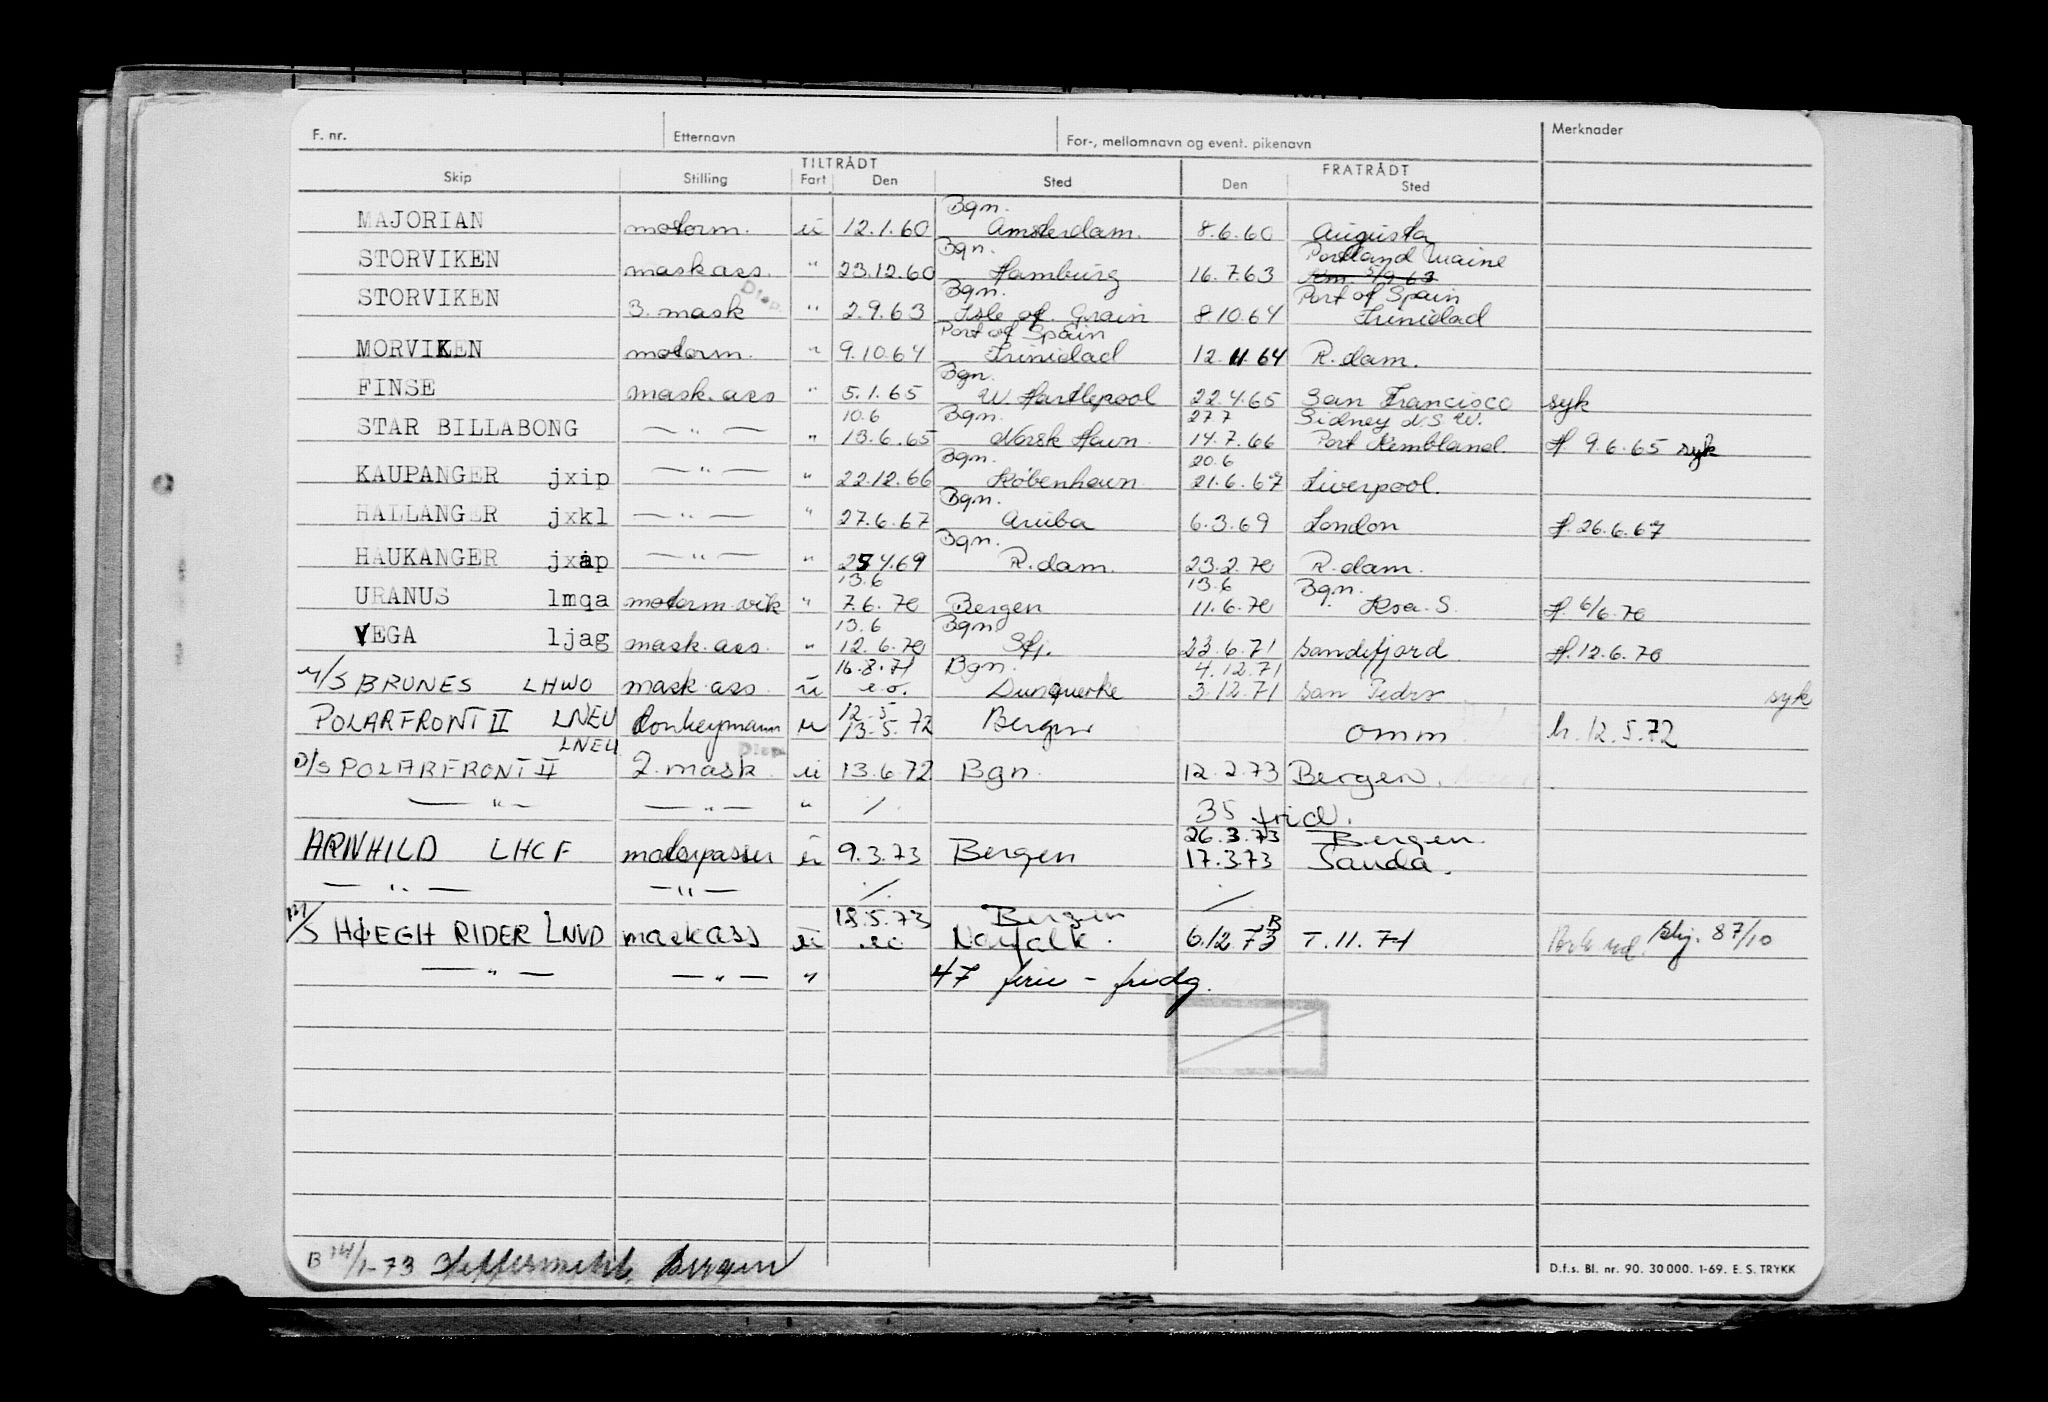 F. nr. Etternavn For-, mellomnavn og event. pikenavn Merknader
TILTRÅDT FRATRÅDT
Skip Stilling Fart Den Sted Den Sted
Bgn.
MAJORIAN motorm. u 12.1.60 Amsterdam. 8.6.60 Augusta
Bgn. Portland Maine
STORVIKEN mask ass. " 23.12.60 Hamburg 16.7.63
Disp Bgn. Port of Spain
STORVIKEN 3. mask " 2.9.63 Isle of. Grain 8.10.64 Trinidad
Port of Spain
MORVIKEN motorm. " 9.10.64 Trinidad 12.11.64 R.dam.
Bgn.
FINSE mask.ass " 5.1.65 W. Hartlepool 22.4.65 San Francisco syk
10.6 Bgn. 27.7 Sidney N.S.W.
STAR BILLABONG — " — " 13.6.65 Norsk Havn. 14.7.66 Port Kembland. H 9.6.65 syk
Bgn. 20.6
KAUPANGER jxip — " — " 22.12.66 København 21.6.67 Liverpool.
Bgn.
HALLANGER jxkl — " — " 27.6.67 Aruba 6.3.69 London H. 26.6.67
Bgn.
HAUKANGER jxap — " — " 25.4.69 R.dam. 23.2.70 R.dam.
13.6 13.6 Bgn.
URANUS lmqa motorm.vik " 7.6.70 Bergen 11.6.70 Krsa. S. H. 6/6.70
13.6 Bgn
VEGA ljag mask.ass. " 12.6.70 Sfj. 23.6.71 Sandefjord H.12.6.70
16.8.71 Bgn. 4.12.71
M/S BRUNES LHWO mask ass. u e.o. Dunquerke 3.12.71 San Pedro syk
12.5
POLARFRONT II LNEU donkeymann u 13.5.72 Bergen omm h.12.5.72
LNEU Disp
D/S POLARFRONT II 2. mask. u 13.6.72 Bgn. 12.2.73 Bergen.
— " — — " — " ⁒ 35 frid.
26.3.73 Bergen.
ARNHILD LHCF motorpasser u 9.3.73 Bergen 17.3.73 Sauda.
— " — — " — ⁒ ⁒
18.5.73 Bergen B
M/S HØEGH RIDER LNVD maskass u eo Norfolk. 6.12.73 T.11.71 87/10
— " — — " — " 47 ferie - fridg.
B 14/1-73 Bergen
D.f.s. Bl. nr. 90. 30 000. 1-69. E. S. TRYKK